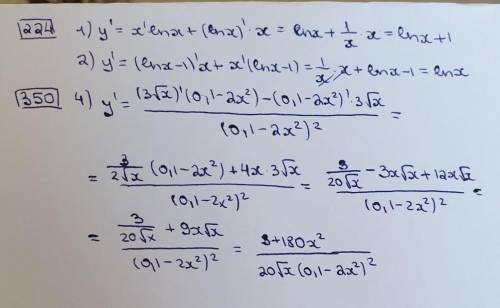 224 1) y' = x' lnx + (lnx)' · x = lnx + 1/x · x = lnx + 1
2) y' = (lnx-1)'x + x'(lnx-1) = 1/x · x + lnx - 1 = lnx
350 4) y' = ((3√x)'(0,1-2x²) - (0,1-2x²)' · 3√x)/(0,1-2x²)² =
= (3/(2√x) (0,1-2x²) + 4x · 3√x)/(0,1-2x²)² = (3/(20√x) - 3x√x + 12x√x)/(0,1-2x²)² =
= (3/(20√x) + 9x√x)/(0,1-2x²)² = (3+180x²)/(20√x (0,1-2x²)²)